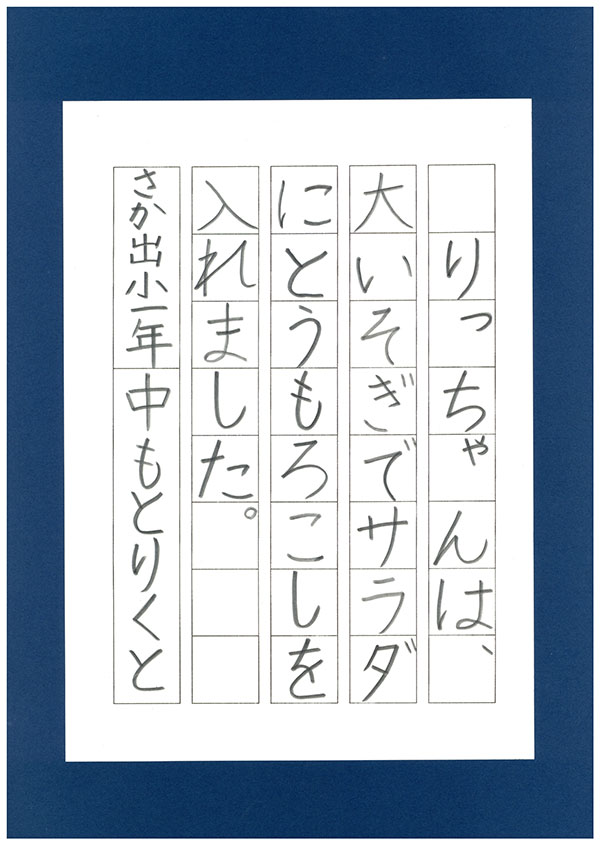 りっちゃんは、
大いそぎでサラダ
にとうもろこしを
入れました。
さか出小一年中もとりくと